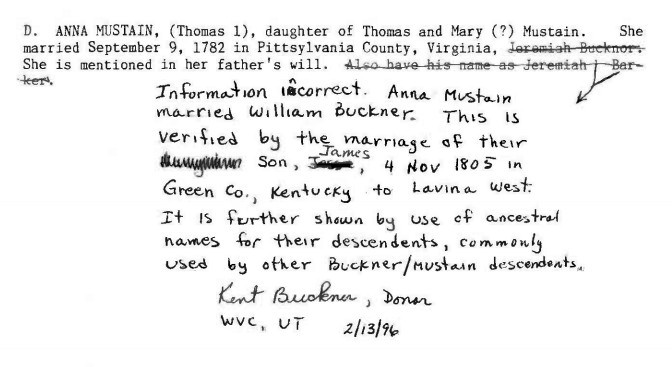 D. ANNA MUSTAIN, (Thomas 1), daughter of Thomas and Mary (?) Mustain. She
married September 9, 1782 in Pittsylvania County, Virginia, Jeremiah Bucknor.
She is mentioned in her father's will. Also have his name as Jeremiah Bar-
ker.
Information incorrect. Anna Mustain
married William Buckner. This is
verified by the marriage of their
Son, James, 4 Nov 1805 in
Green Co., Kentucky to Lavina West.
It is further shown by use of ancestral
names for their descendents, commonly
used by other Buckner/Mustain descendents.
Kent Buckner, Donor
WVC, UT 2/13/96